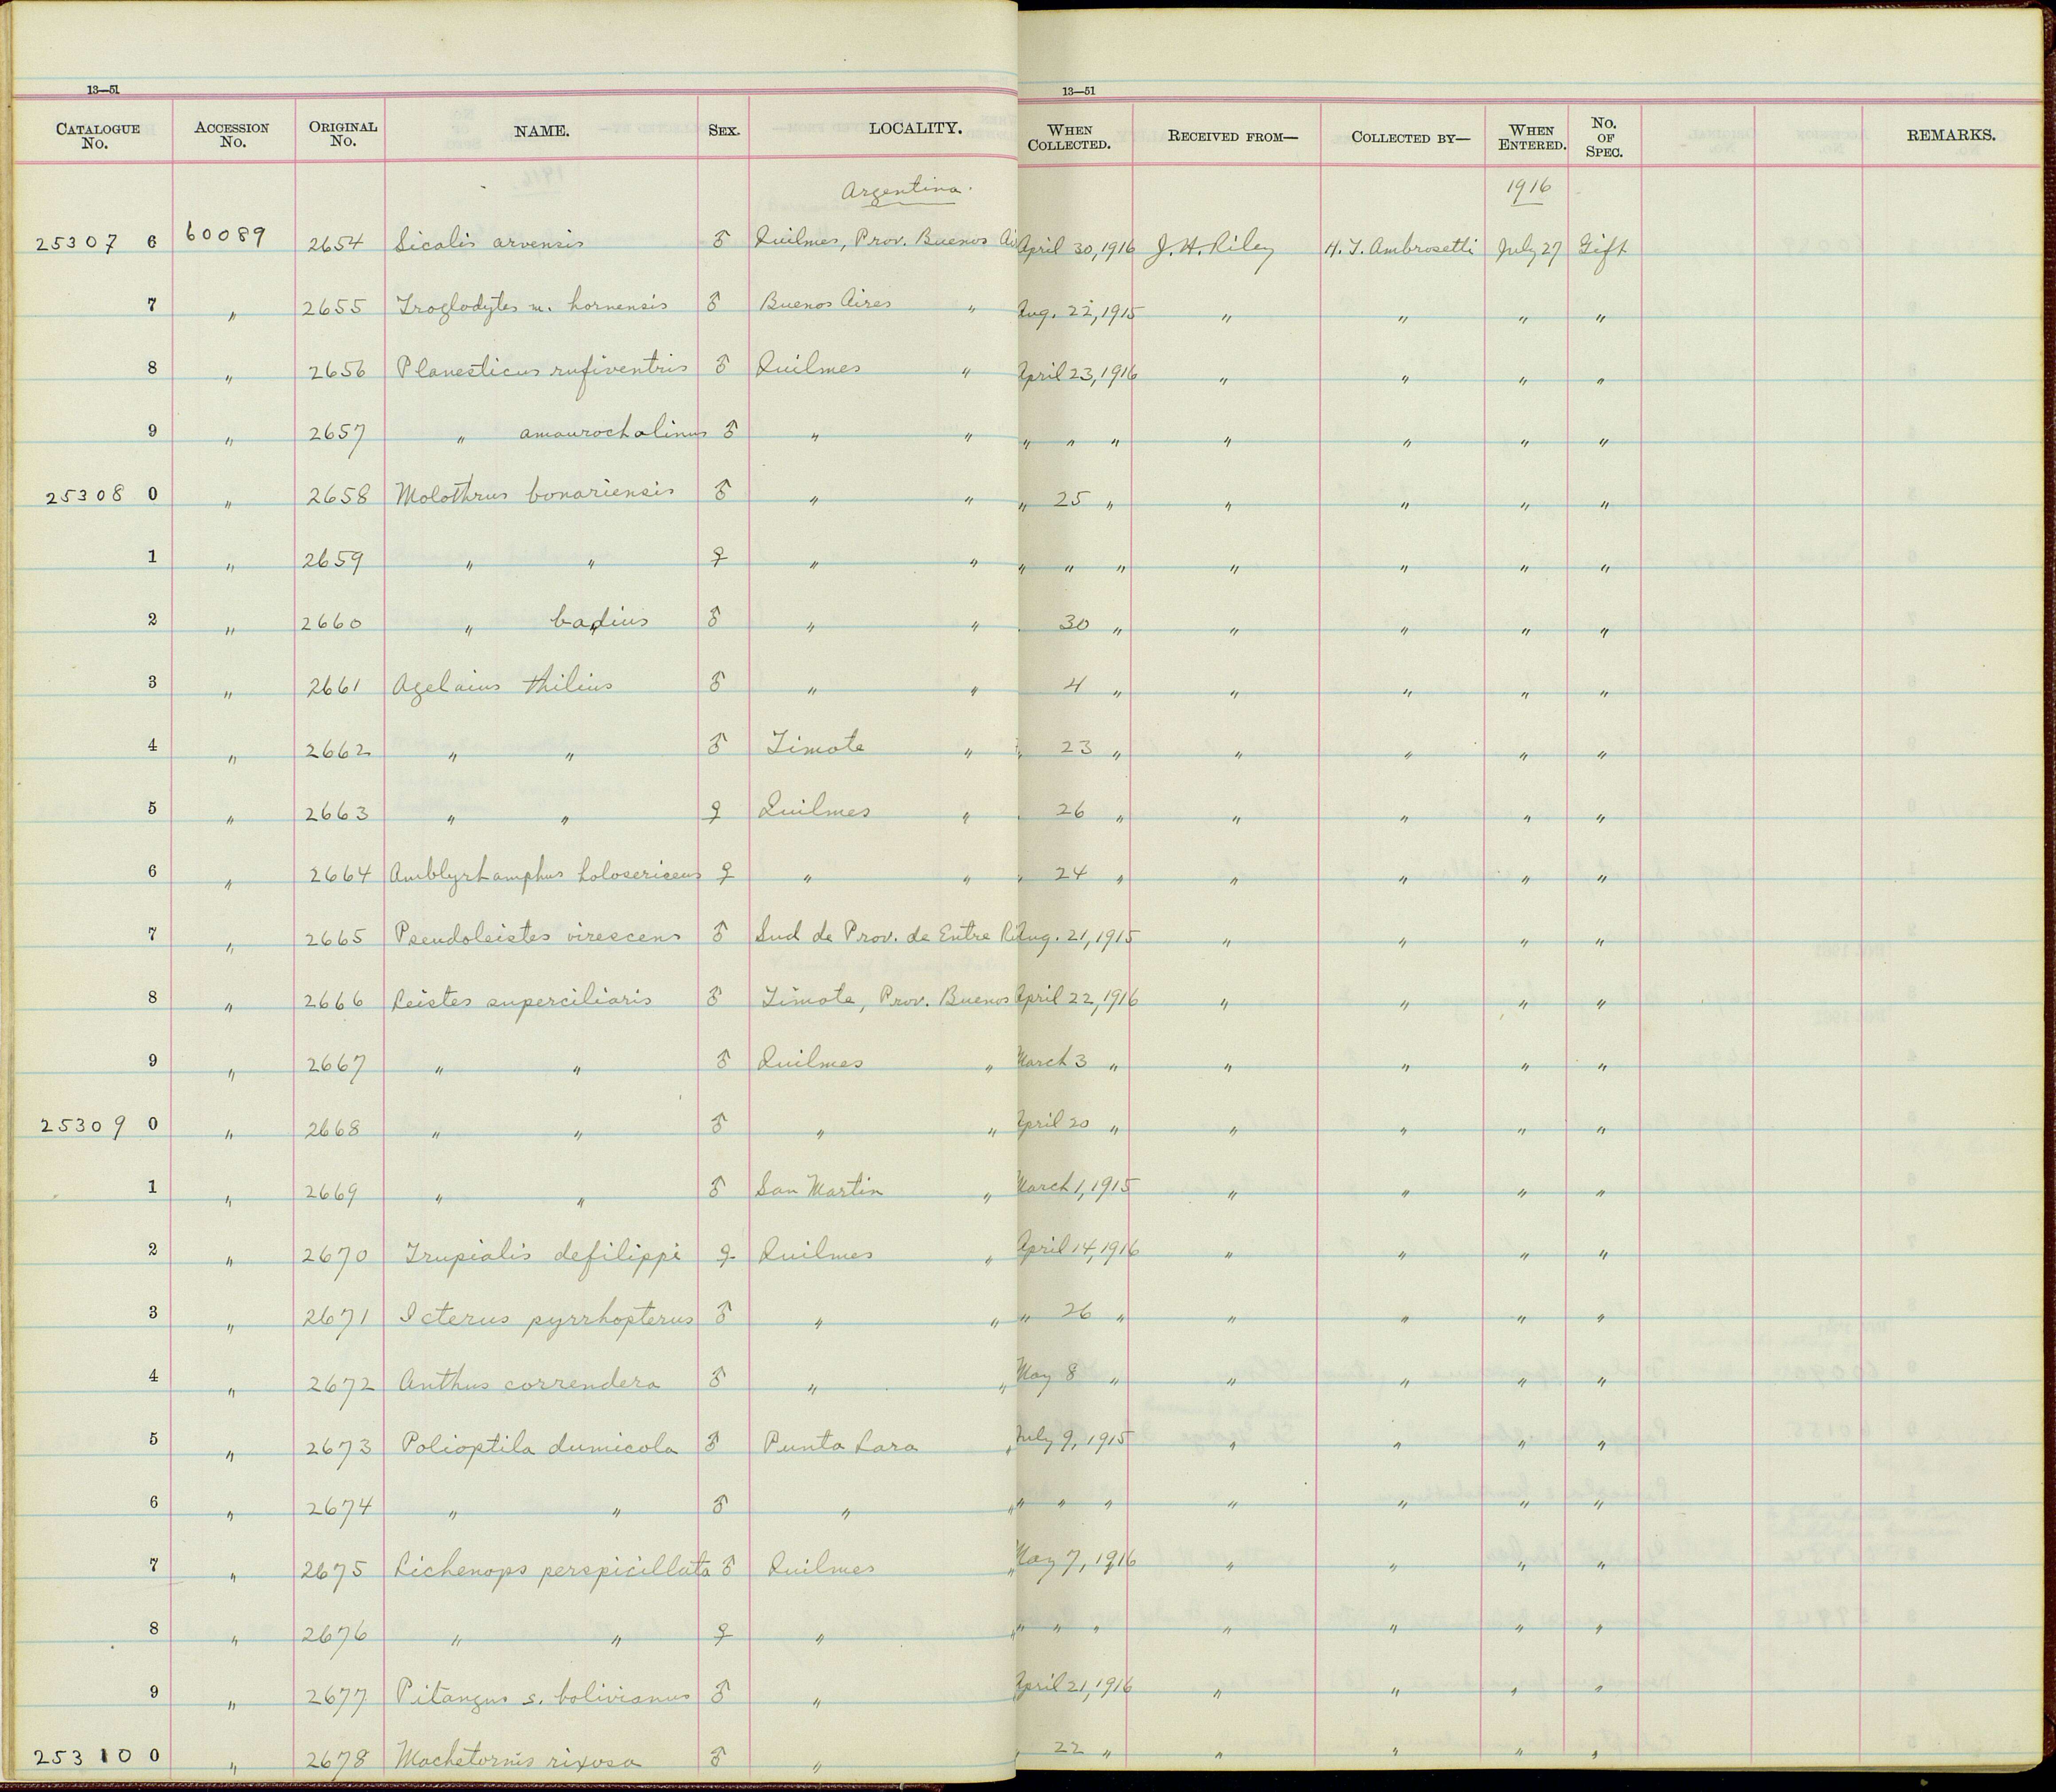 13—51 13—51
CATALOGUE No. ACCESSION No. ORIGINAL No. NAME. SEX. LOCALITY. WHEN COLLECTED. RECEIVED FROM— COLLECTED BY— WHEN ENTERED. No. OF SPEC. REMARKS.
Argentina. 1916
25307 6 60089 2654 Sicalis arvensis ♂ Quilmes, Prov. Buenos Ai April 30, 1916 J. H. Riley H. T. Ambrosetti July 27 Gift
7 " 2655 Troglodytes m. hornensis ♂ Buenos Aires " Aug. 22, 1915 " " " "
8 " 2656 Planesticus rufiventris ♂ Quilmes " April 23, 1916 " " " "
9 " 2657 " amaurochalinus ♂ " " " " " " " " "
25308 0 " 2658 Molothrus bonariensis ♂ " " " 25 " " " " "
1 " 2659 " " ♀ " " " " " " " " "
2 " 2660 " badius ♂ " " 30 " " " " "
3 " 2661 Agelaius thilius ♂ " " 4 " " " " "
4 " 2662 " " ♂ Timote " " 23 " " " " "
5 " 2663 " " ♀ Quilmes " " 26 " " " " "
6 " 2664 Amblyrhamphus holosericeus ♀ " " " 24 " " " " "
7 " 2665 Pseudoleistes virescens ♂ Sud de Prov. de Entre Ri Aug. 21, 1915 " " " "
8 " 2666 Leistes superciliaris ♂ Timote, Prov. Buenos April 22, 1916 " " " "
9 " 2667 " " ♂ Quilmes " March 3 " " " " "
25309 0 " 2668 " " ♂ " " April 20 " " " " "
1 " 2669 " " ♂ San Martin " March 1, 1915 " " " "
2 " 2670 Trupialis defilippi ♀ Quilmes " April 14, 1916 " " " "
3 " 2671 Icterus pyrrhopterus ♂ " " " 26 " " " " "
4 " 2672 Anthus correndera ♂ " " May 8 " " " " "
5 " 2673 Polioptila dumicola ♂ Punta Lara " July 9, 1915 " " " "
6 " 2674 " " ♂ " " " " " " " " "
7 " 2675 Lichenops perspicillata ♂ Quilmes " May 7, 1916 " " " "
8 " 2676 " " ♀ " " " " " " " " "
9 " 2677 Pitangus s. bolivianus ♂ " April 21, 1916 " " " "
25310 0 " 2678 Machetornis rixosa ♂ " " 22 " " " " "